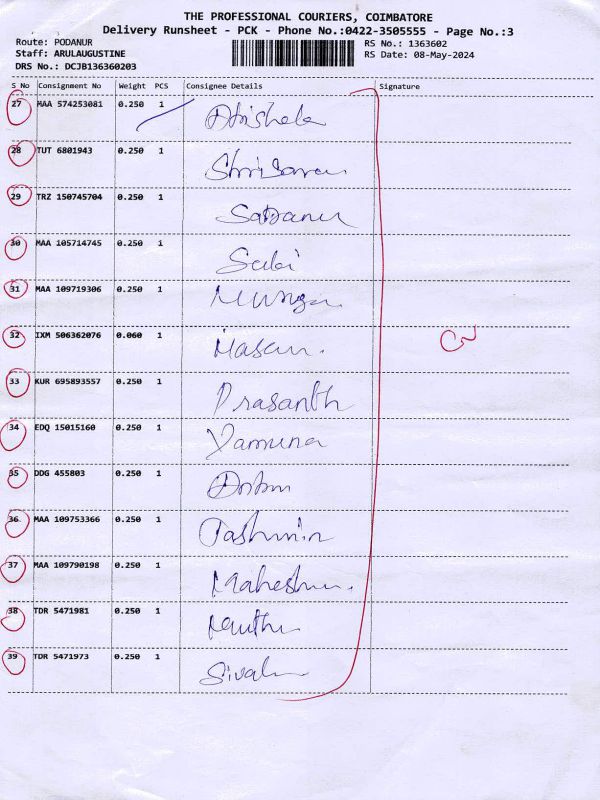 THE PROFESSIONAL COURIERS, COIMBATORE
Delivery Runsheet - PCK - Phone No.:0422-3505555 - Page No.:3
Route: PODANUR RS No.: 1363602
Staff: ARULAUGUSTINE RS Date: 08-May-2024
DRS No.: DCJB136360203
S No Consignment No Weight PCS Consignee Details Signature
27 MAA 574253081 0.250 1
28 TUT 6801943 0.250 1
29 TRZ 150745704 0.250 1
30 MAA 105714745 0.250 1 Sabi
31 MAA 109719306 0.250 1
32 IXM 506362076 0.060 1
33 KUR 695893557 0.250 1 Prasanth
34 EDQ 15015160 0.250 1 Yamuna
35 DDG 455803 0.250 1
36 MAA 109753366 0.250 1
37 MAA 109790198 0.250 1
38 TDR 5471981 0.250 1
39 TDR 5471973 0.250 1